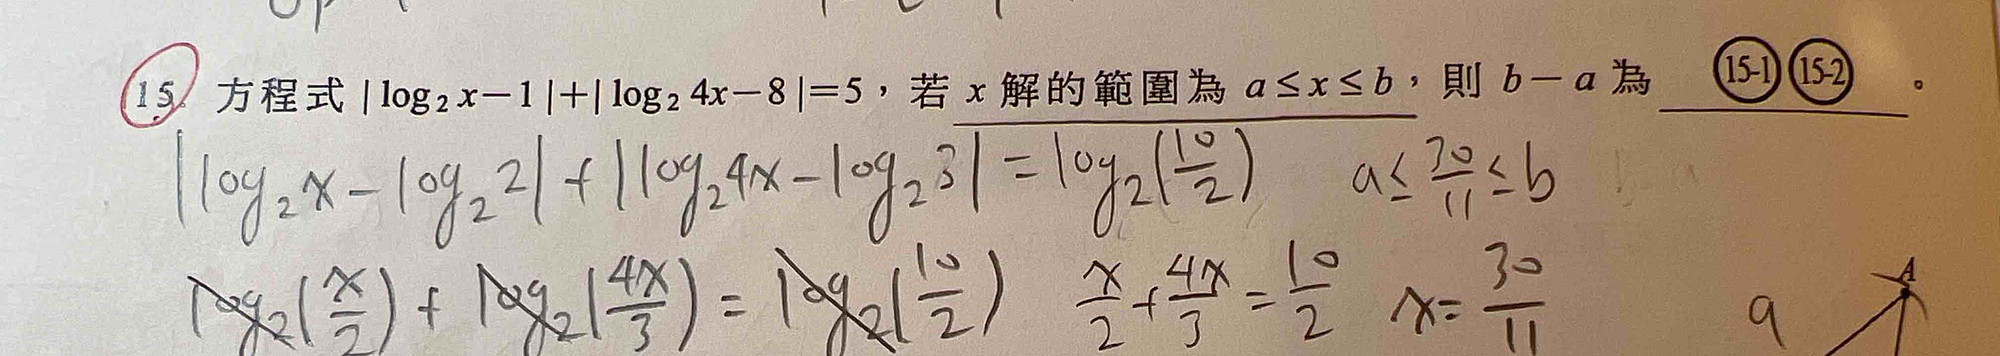 15. 方程式 | log₂ x − 1 | + | log₂ 4x − 8 | = 5，若 x 解的範圍為 a ≤ x ≤ b，則 b − a 為 (15-1)(15-2)。
|log₂x − log₂2| + |log₂4x − log₂3| = log₂(10/2) a ≤ 30/11 ≤ b
log₂(x/2) + log₂(4x/3) = log₂(10/2) x/2 + 4x/3 = 10/2 x = 30/11
A